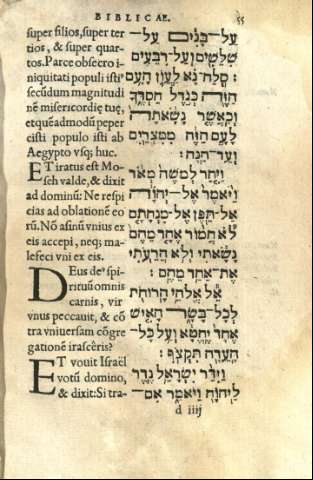 BIBLICAE. 55
super filios, super ter
tios, & super quar
tos. Parce obsecro i-
niquitati populi isti᾽
secūdum magnitudi
nē misericordię tuę,
etquēadmodū peper
cisti populo isti ab
Aegypto vsq; huc.
ET iratus est Mo-
seh valde, & dixit
ad dominū: Ne respi
cias ad oblationē eo
rū. Nō asinū vnius ex
eis accepi, neq; ma-
lefeci vni ex eis.
DEus de᾽ spi-
rituū omnis
carnis, vir
vnus peccauit, & cō
tra vniuersam cōgre
gationē irascêris?
ET vouit Israël
votū domino,
& dixit: Si tra-
עַל־בָּנִים עַל־
שִׁלֵּשִׁים וְעַל־רִבֵּעִים
סְלַח־נָא לַעֲוֺן הָעָם :
הַזֶּה כְּגֹדֶל חַסְדֶּךָ
וְכַאֲשֶׁר נָשָׂאתָה
לָעָם הַזֶּה מִמִּצְרַיִם
וְעַד־הֵנָּה :
וַיִּחַר לְמֹשֶׁה מְאֹד
וַיֹּאמֶר אֶל־יְהוָֹה
אַל־תֵּפֶן אֶל־מִנְחָתָם
לֹא חֲמוֹר אֶחָד מֵהֶם
נָשָׂאתִי וְלֹא הֲרֵעֹתִי
אֶת־אַחַד מֵהֶם :
אֵל אֱלֹהֵי הָרוּחֹת
לְכָל־בָּשָׂר הָאִישׁ
אֶחָד יֶחֱטָא וְעַל כָּל־
הָעֵדָה תִּקְצֹף :
וַיִּדַּר יִשְׂרָאֵל נֶדֶר
לַיהוָֹה וַיֹּאמַר אִם־
d iiij